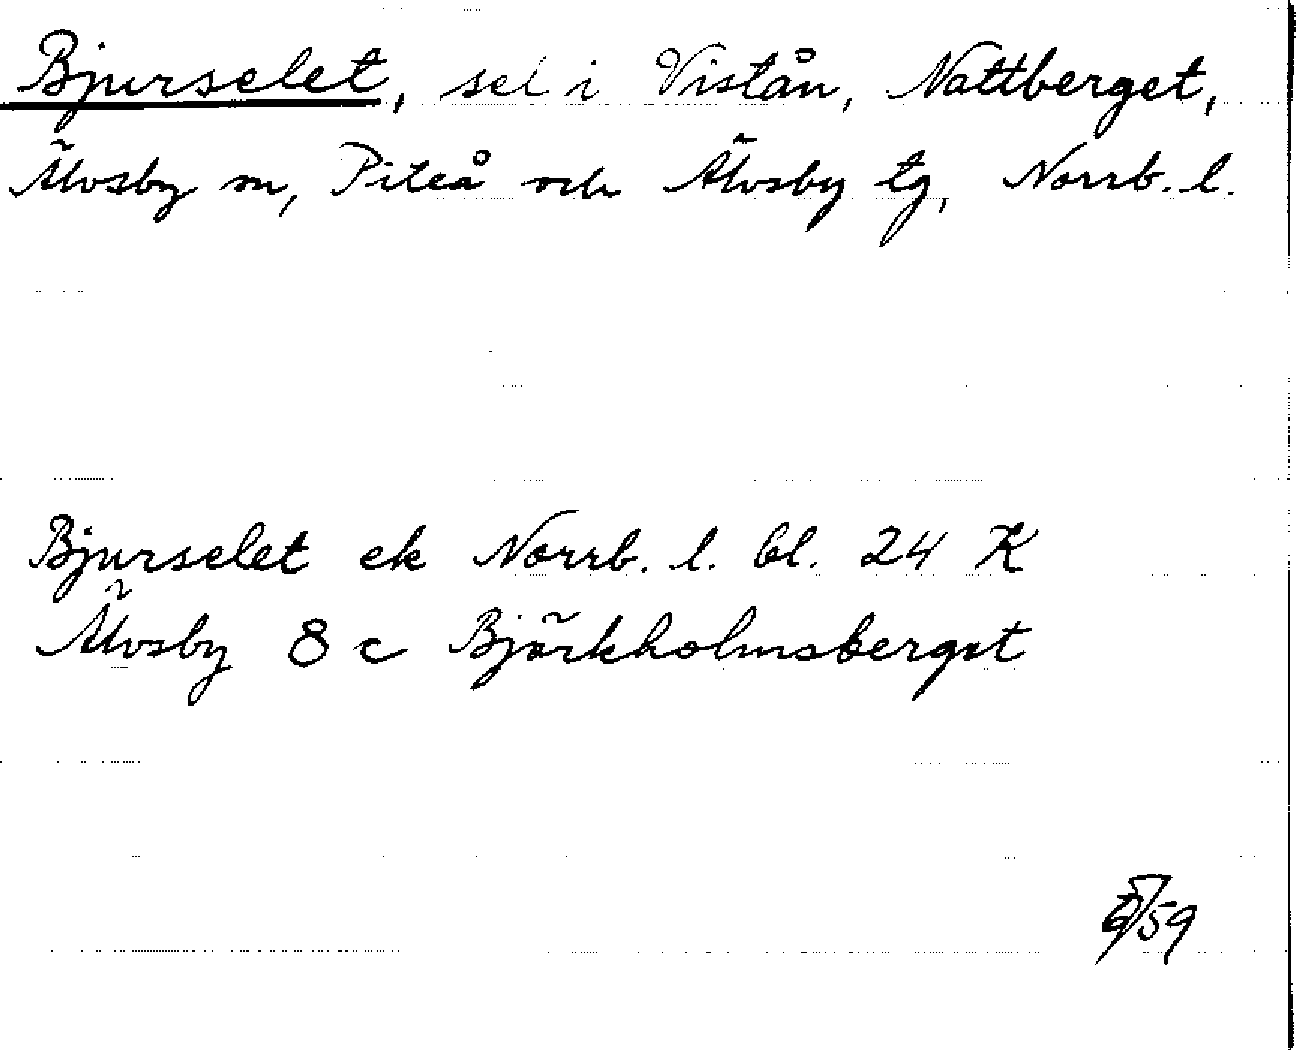 Bjurselet, sel i Vistån, Nattberget,
Älvsby m, Piteå och Älvsby tg, Norrb. l.
Bjurselet ek Norrb. l. bl. 24 K
Älvsby 8 c Björkholmsberget